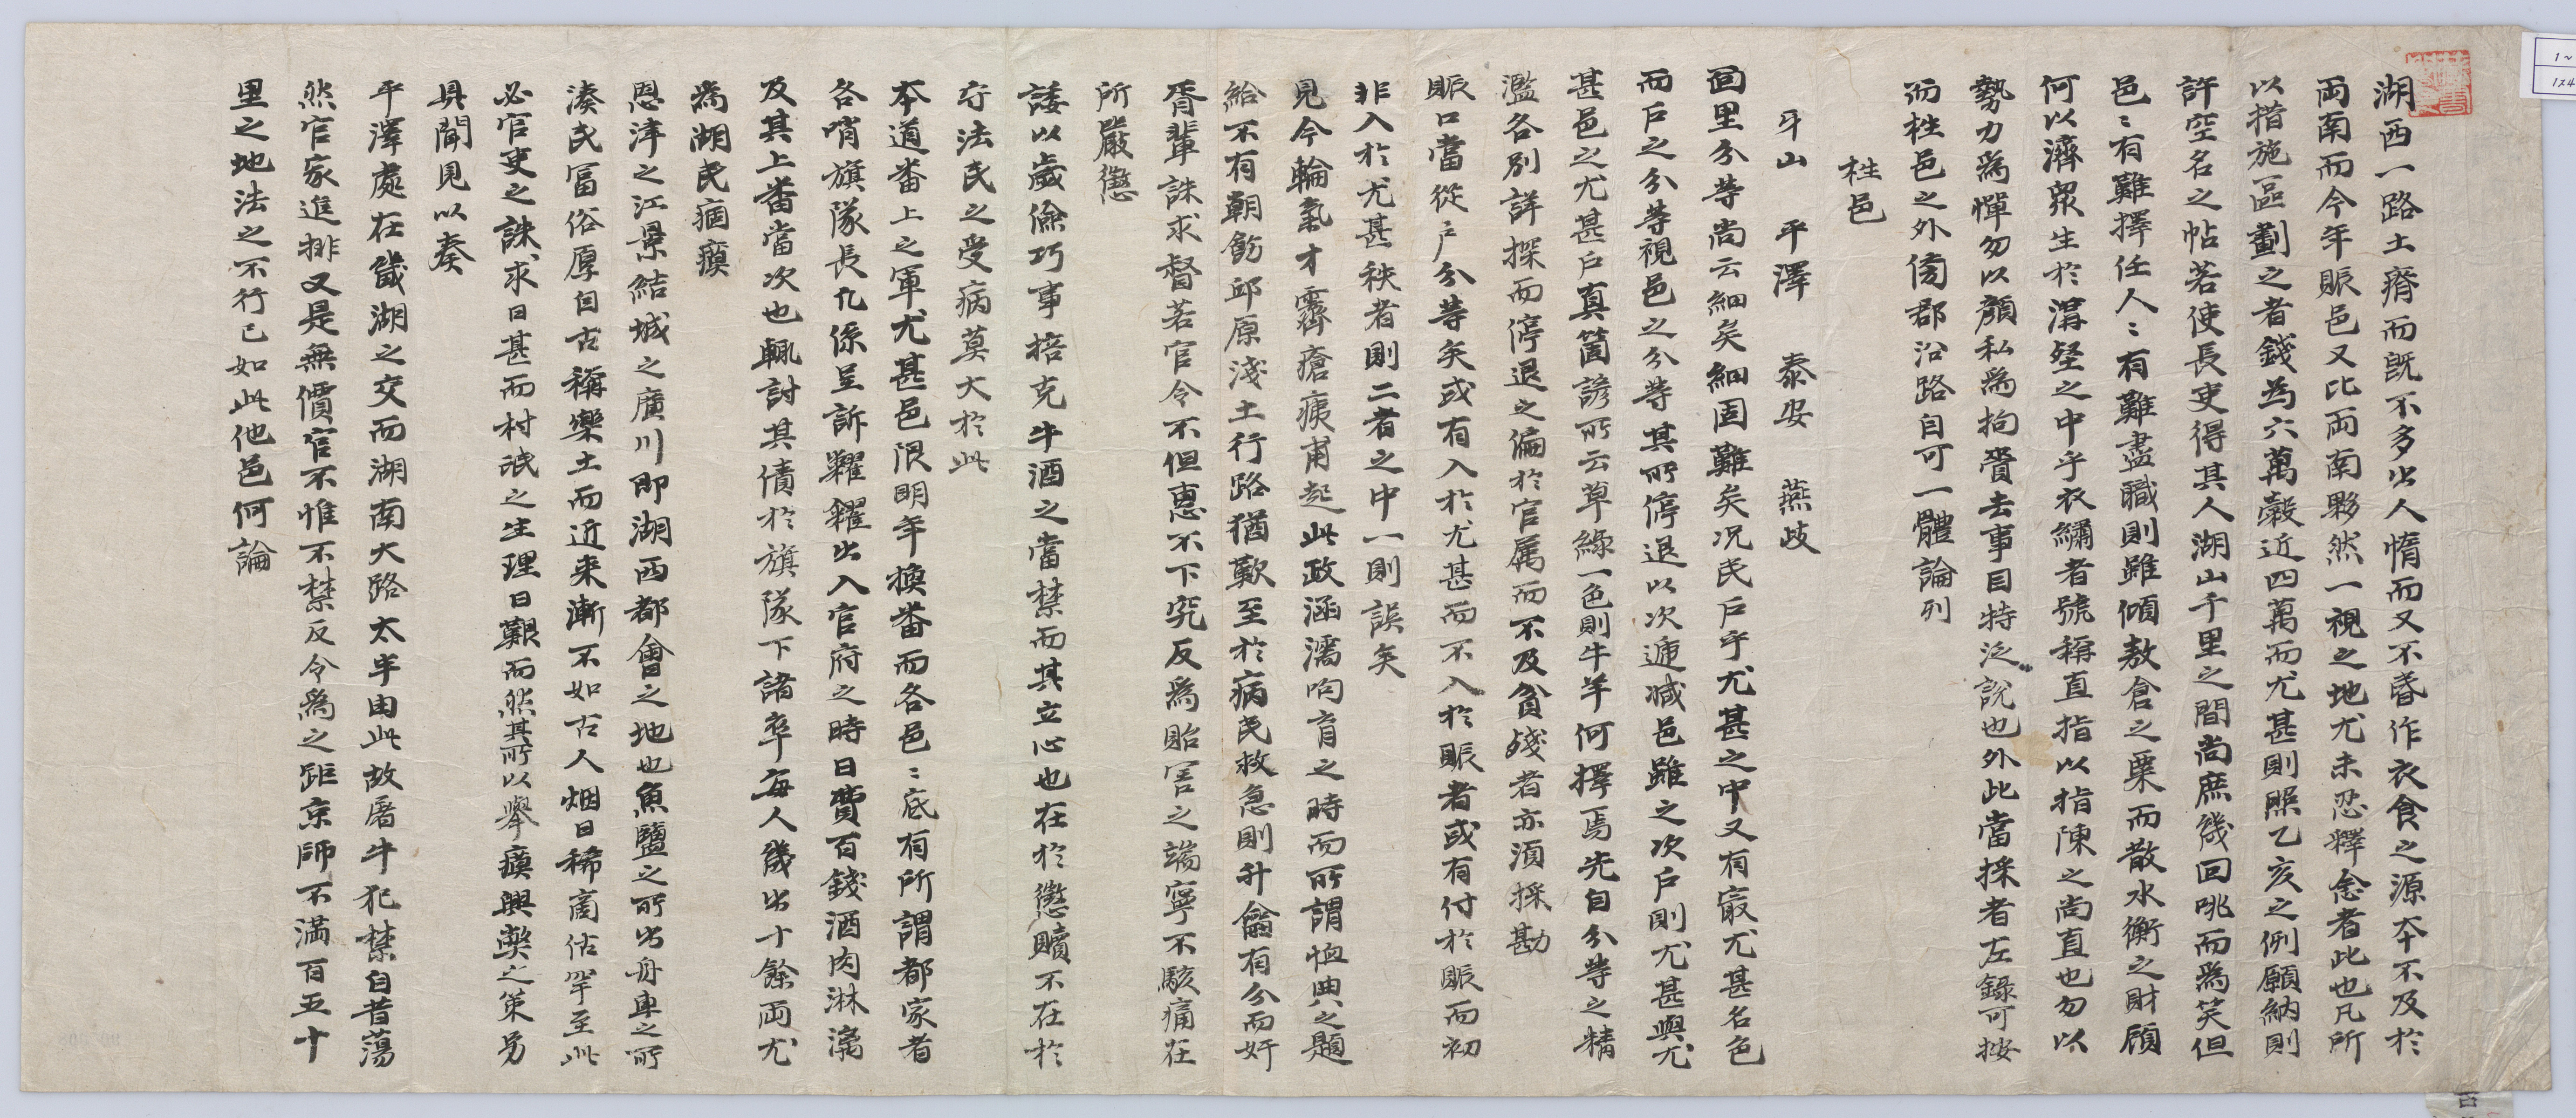 湖西一路土瘠而旣不多出人惰而又不昏作衣食之源本不及於
両南而今年賑邑又比両南夥然一視之地尤未忍釋念者此也凡所
以措施區劃之者錢爲六萬穀近四萬而尤甚則照乙亥之例願納則
許空名之帖若使長吏得其人湖山千里之間尚庶幾回咷而爲笑但
邑〻有難擇任人〻有難盡職則雖傾敖倉之粟而散水衡之財顧
何以濟衆生於溝壑之中乎衣繡者號稱直指以指陳之尚直也勿以
勢力爲憚勿以顔私爲拘賫去事目特泛說也外此當採者左錄可按
而栍邑之外傍郡沿路自可一體論列
栍邑
牙山 平澤 泰安 燕歧
面里分等尚云細矣細固難矣况民戶乎尤甚之中又有㝡尤甚名色
而戶之分等視邑之分等其所停退以次遞减邑雖之次戶則尤甚與尤
甚邑之尤甚戶真箇諺所云草綠一色則牛羊何擇焉先自分等之精
濫各別詳探而停退之偏於官属而不及貧殘者亦須採勘
賑口當從戶分等矣或有入於尤甚而不入於賑者或有付於賑而初
非入於尤甚秩者則二者之中一則誤矣
見今輪氣才霽瘡痍甫起此政涵濡呴育之時而所謂恤典之題
給不有朝飭邱原淺土行路猶歎至於病民救急則升龠有分而奸
胥輩誅求督若官令不但惠不下究反爲貽害之端寧不駭痛在
所嚴懲
諉以歲儉巧事掊克牛酒之當禁而其立心也在於懲贖不在於
守法民之受病莫大於此
本道番上之軍尤甚邑限明年換番而各邑〻底有所謂都家者
各哨旗隊長凡係呈訴糶糴出入官府之時日費百錢酒肉淋漓
及其上番當次也輒討其債於旗隊下諸卒每人幾出十餘両尤
爲湖民痼瘼
恩津之江景結城之廣川即湖西都會之地也魚鹽之所出舟車之所
湊民富俗厚自古稱樂土而近来漸不如古人烟日稀啇估罕至此
必官吏之誅求日甚而村氓之生理日艱而然其所以擧瘼興獘之策另
具聞見以奏
平澤處在畿湖之交而湖南大路太半由此故屠牛犯禁自昔蕩
然官家進排又是無價官不惟不禁反令爲之距京師不満百五十
里之地法之不行已如此他邑何論